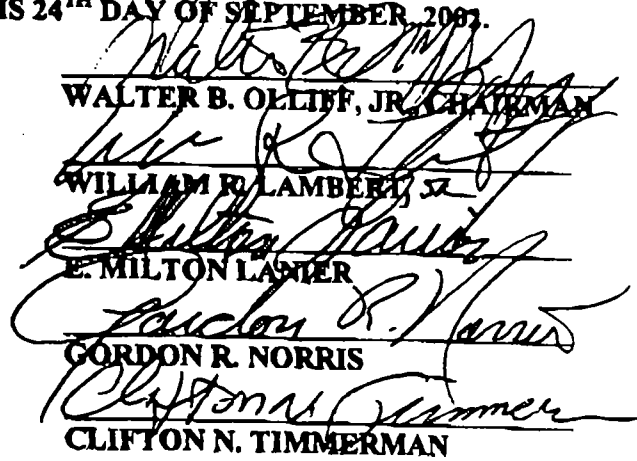 IS 24TH DAY OF SEPTEMBER, 2002.
WALTER B. OLLIFF, JR., CHAIRMAN
WILLIAM R. LAMBERT, SR.
E. Milton Lanier
E. MILTON LANIER
Gordon R. Norris
GORDON R. NORRIS
Clifton N. Timmerman
CLIFTON N. TIMMERMAN